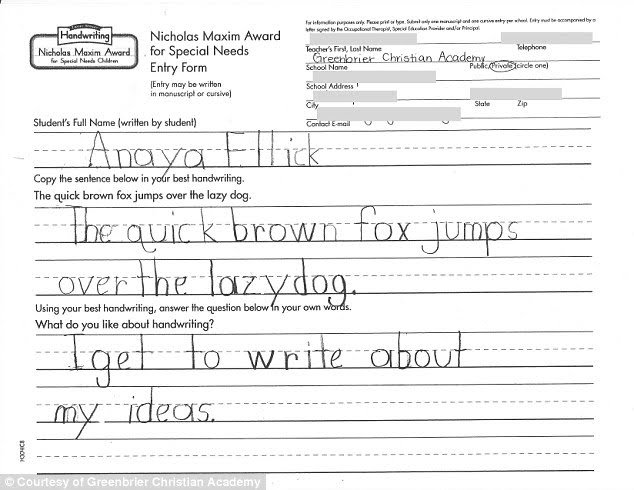 Handwriting
Nicholas Maxim Award
for Special Needs Children
Nicholas Maxim Award
for Special Needs
Entry Form
(Entry may be written
in manuscript or cursive)
For information purposes only. Please print or type. Submit only one manuscript and one cursive entry per school. Entry must be accompanied by a
letter signed by the Occupational Therapist, Special Education Provider and/or Principal.
Teacher's First, Last Name Telephone
Greenbrier Christian Academy
School Name Public, Private (circle one)
School Address
City State Zip
Contact E-mail
Student's Full Name (written by student)
Anaya Ellick
Copy the sentence below in your best handwriting.
The quick brown fox jumps over the lazy dog.
The quick brown fox jumps
over the lazy dog.
Using your best handwriting, answer the question below in your own words.
What do you like about handwriting?
I get to write about
my ideas.
© Courtesy of Greenbrier Christian Academy